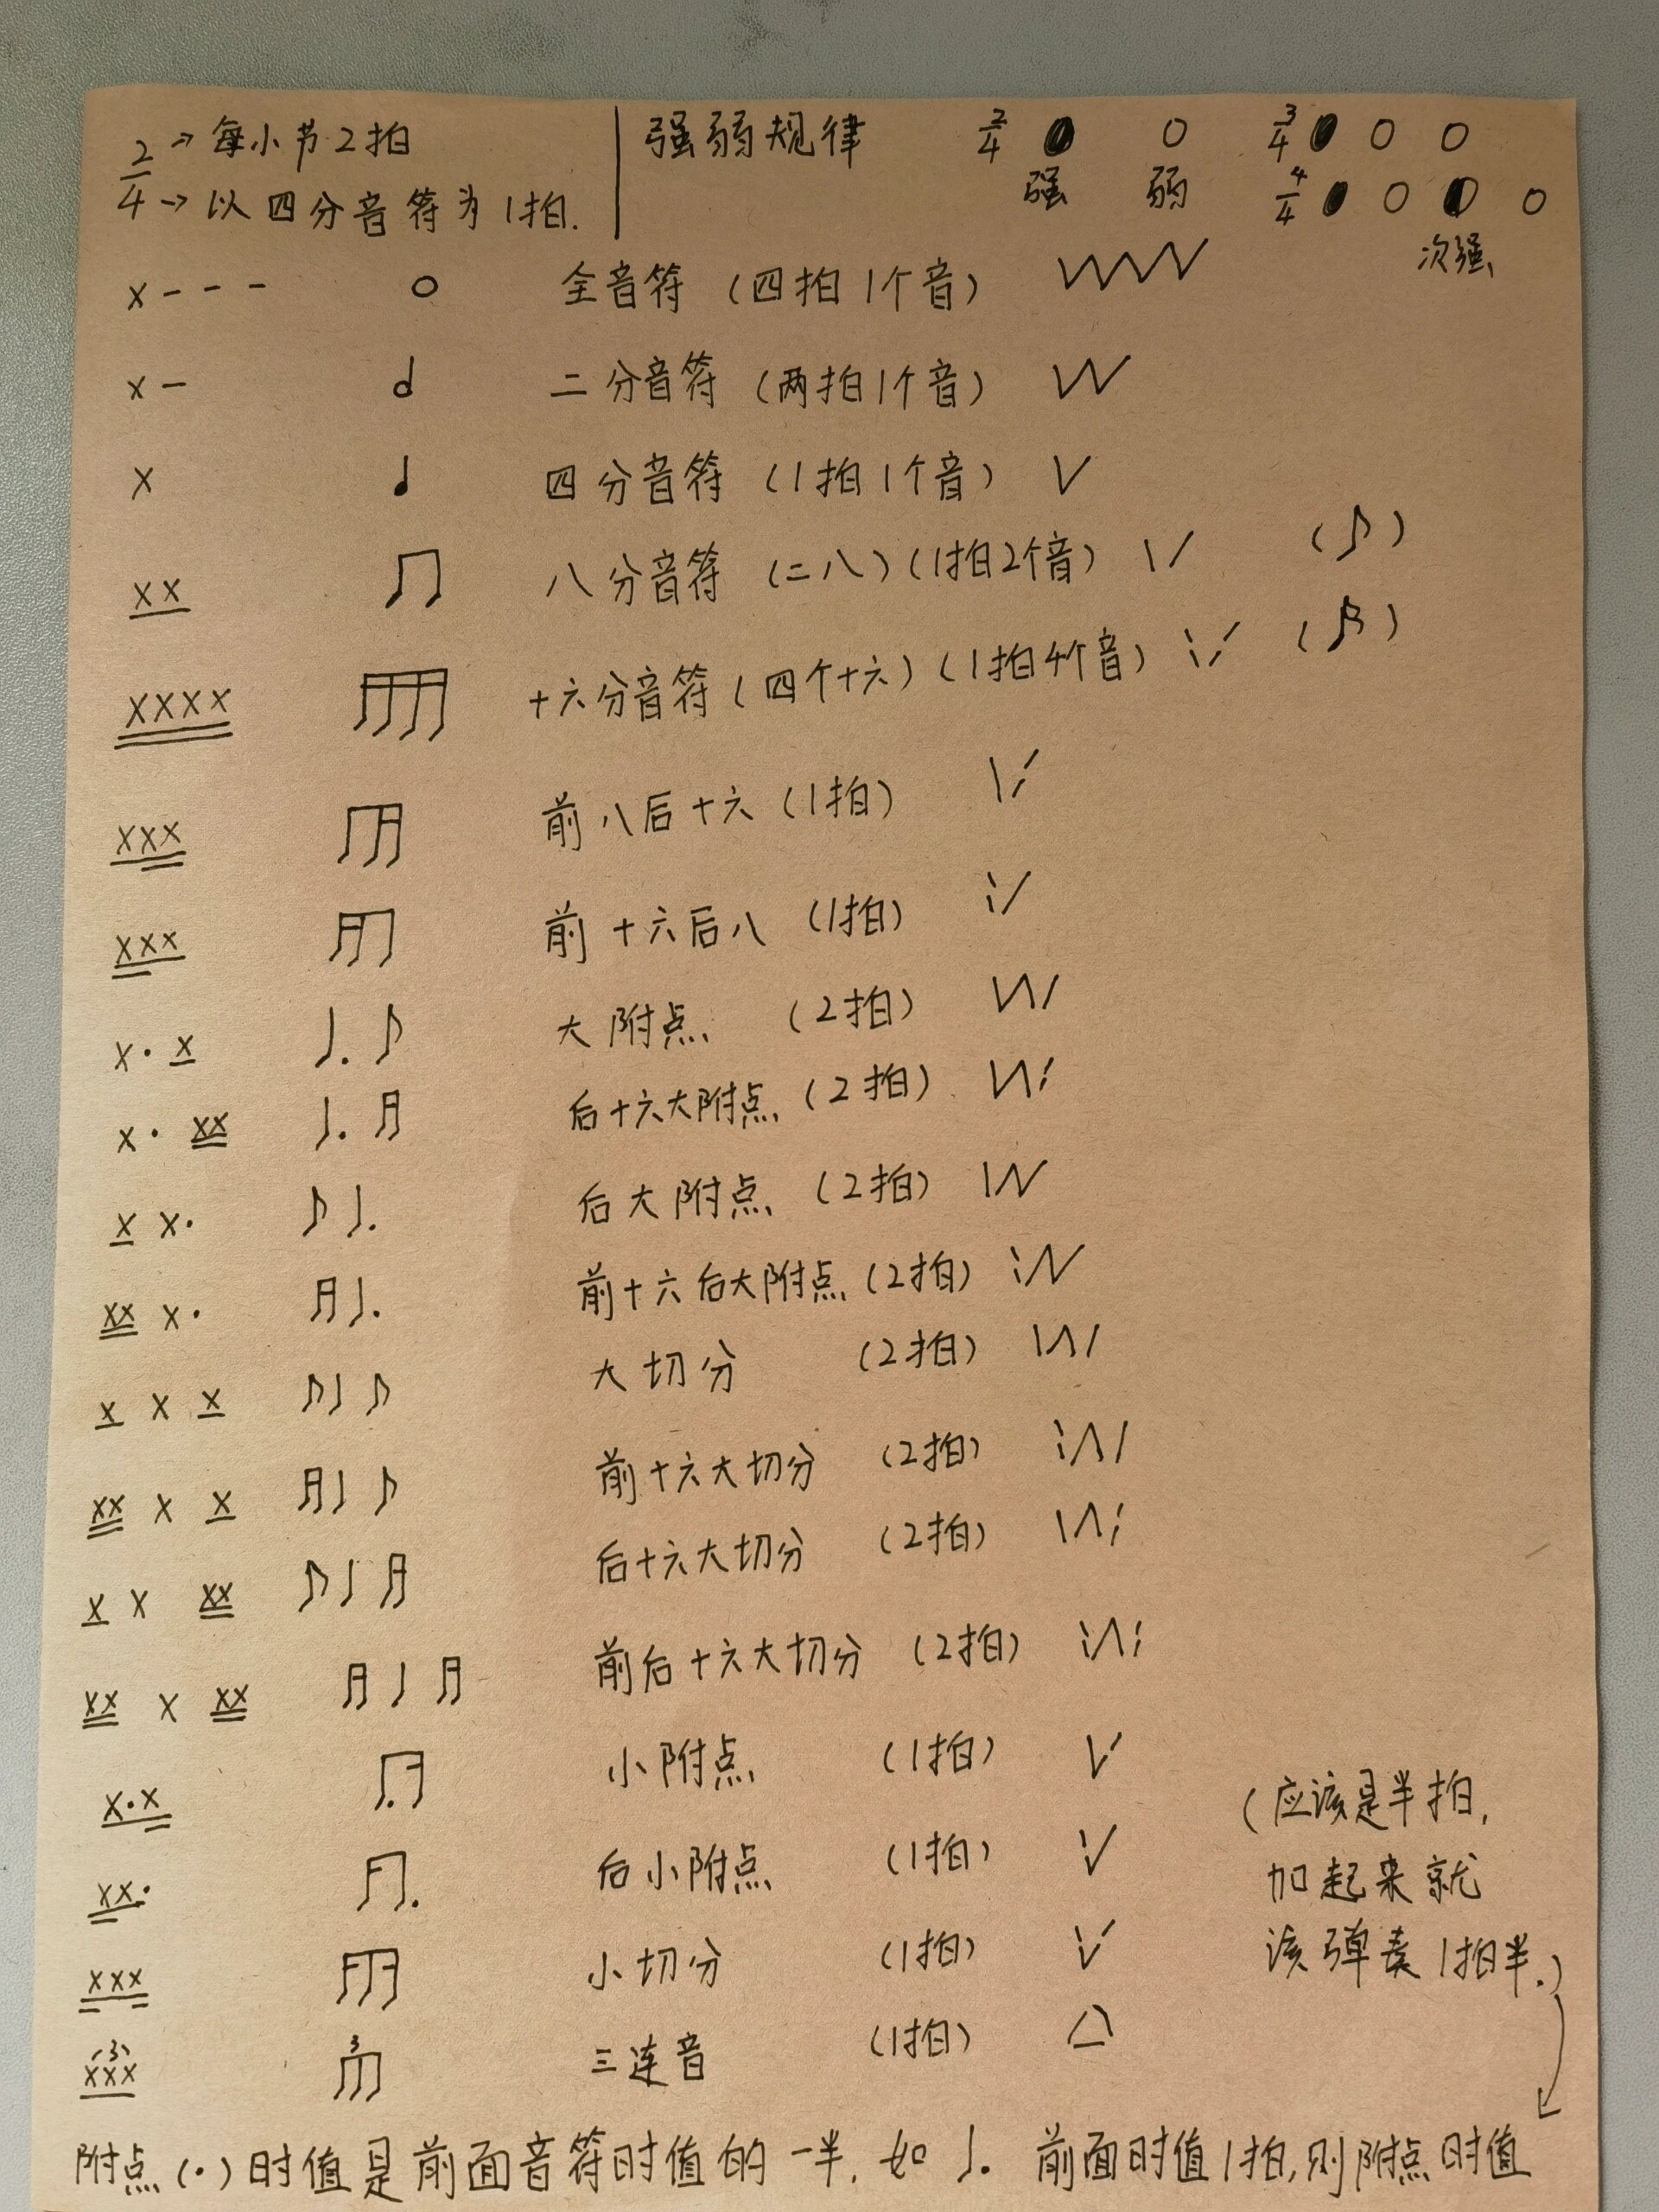 2/4 → 每小节2拍
→ 以四分音符为1拍.
强弱规律 2/4 ● ○ 3/4 ● ○ ○
强 弱 4/4 ● ○ ◐ ○
次强
x - - - 𝅝 全音符 (四拍1个音) VVVV
x - 𝅗𝅥 二分音符 (两拍1个音) VV
x ♩ 四分音符 (1拍1个音) V
xx ♫ 八分音符 (二八) (1拍2个音) \ / (♪)
xxxx 十六分音符 (四个十六) (1拍4个音)
xxx 前八后十六 (1拍)
xxx 前十六后八 (1拍)
x· x ♩. ♪ 大附点 (2拍)
x· xx ♩. ♬ 后十六大附点 (2拍)
x x· ♪ ♩. 后大附点 (2拍)
xx x· ♬ ♩. 前十六后大附点 (2拍)
x x x ♪ ♩ ♪ 大切分 (2拍)
xx x x ♬ ♩ ♪ 前十六大切分 (2拍)
x x xx ♪ ♩ ♬ 后十六大切分 (2拍)
xx x xx ♬ ♩ ♬ 前后十六大切分 (2拍)
x·x 小附点 (1拍)
xx· 后小附点 (1拍)
xxx 小切分 (1拍)
3
xxx 三连音 (1拍)
附点 (·) 时值是前面音符时值的一半, 如 ♩. 前面时值1拍, 则附点时值
(应该是半拍,
加起来就
该弹奏1拍半.)